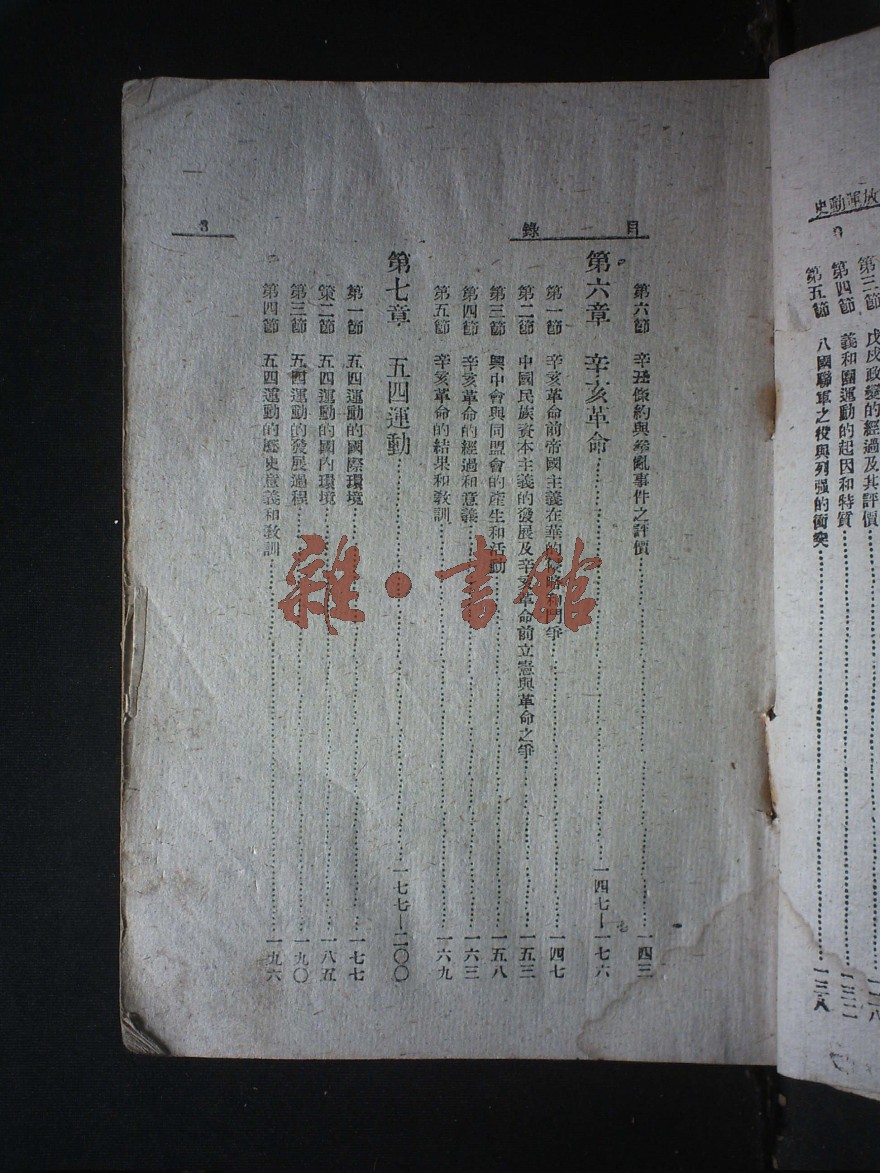 放運動史
第三節 戊戌政變的經過及其評價……一二八
第四節 義和團運動的起因和特質……一三二
第五節 八國聯軍之役與列强的衝突……一三八
目錄
3
第六節 辛丑條約與拳亂事件之評價……一四三
第六章 辛亥革命……一四七—一七六
第一節 辛亥革命前帝國主義在華的侵略和鬥爭……一四七
第二節 中國民族資本主義的發展及辛亥革命前立憲與革命之爭……一五三
第三節 興中會與同盟會的產生和活動……一五八
第四節 辛亥革命的經過和意義……一六三
第五節 辛亥革命的結果和敎訓……一六九
第七章 五四運動……一七七—二〇〇
第一節 五四運動的國際環境……一七七
第二節 五四運動的國內環境……一八五
第三節 五四運動的發展過程……一九〇
第四節 五四運動的歷史意義和敎訓……一九六
雜·書館